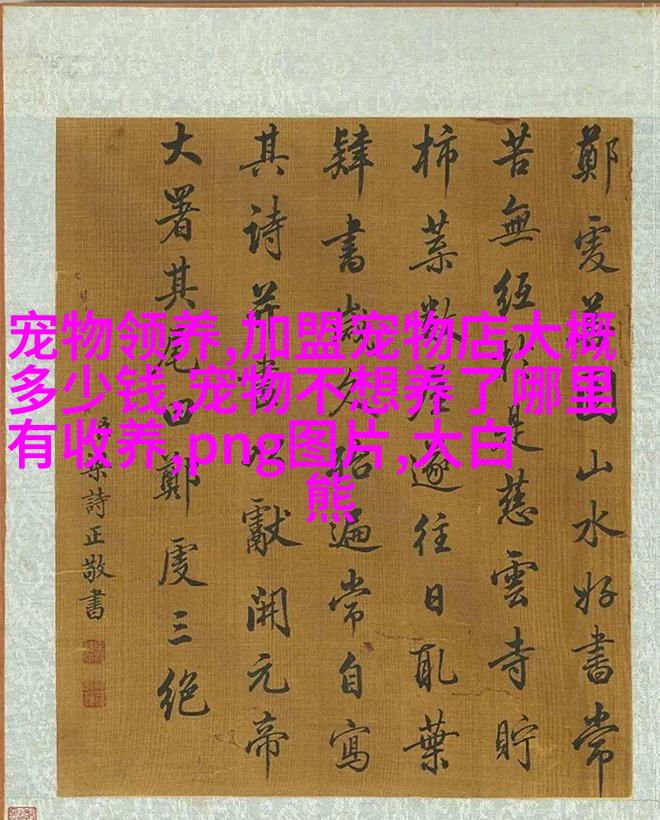 鄭虔善圖山水好書常
苦無紙於是慈雲寺貯
柿葉數屋遂往日取葉
肄書歲久殆遍常自寫
其詩并畫獻開元帝
大署其尾曰鄭虔三絕
梁詩正敬書
宠物领养,加盟宠物店大概
多少钱,宠物不想养了哪里
有收养,png图片,大白
熊